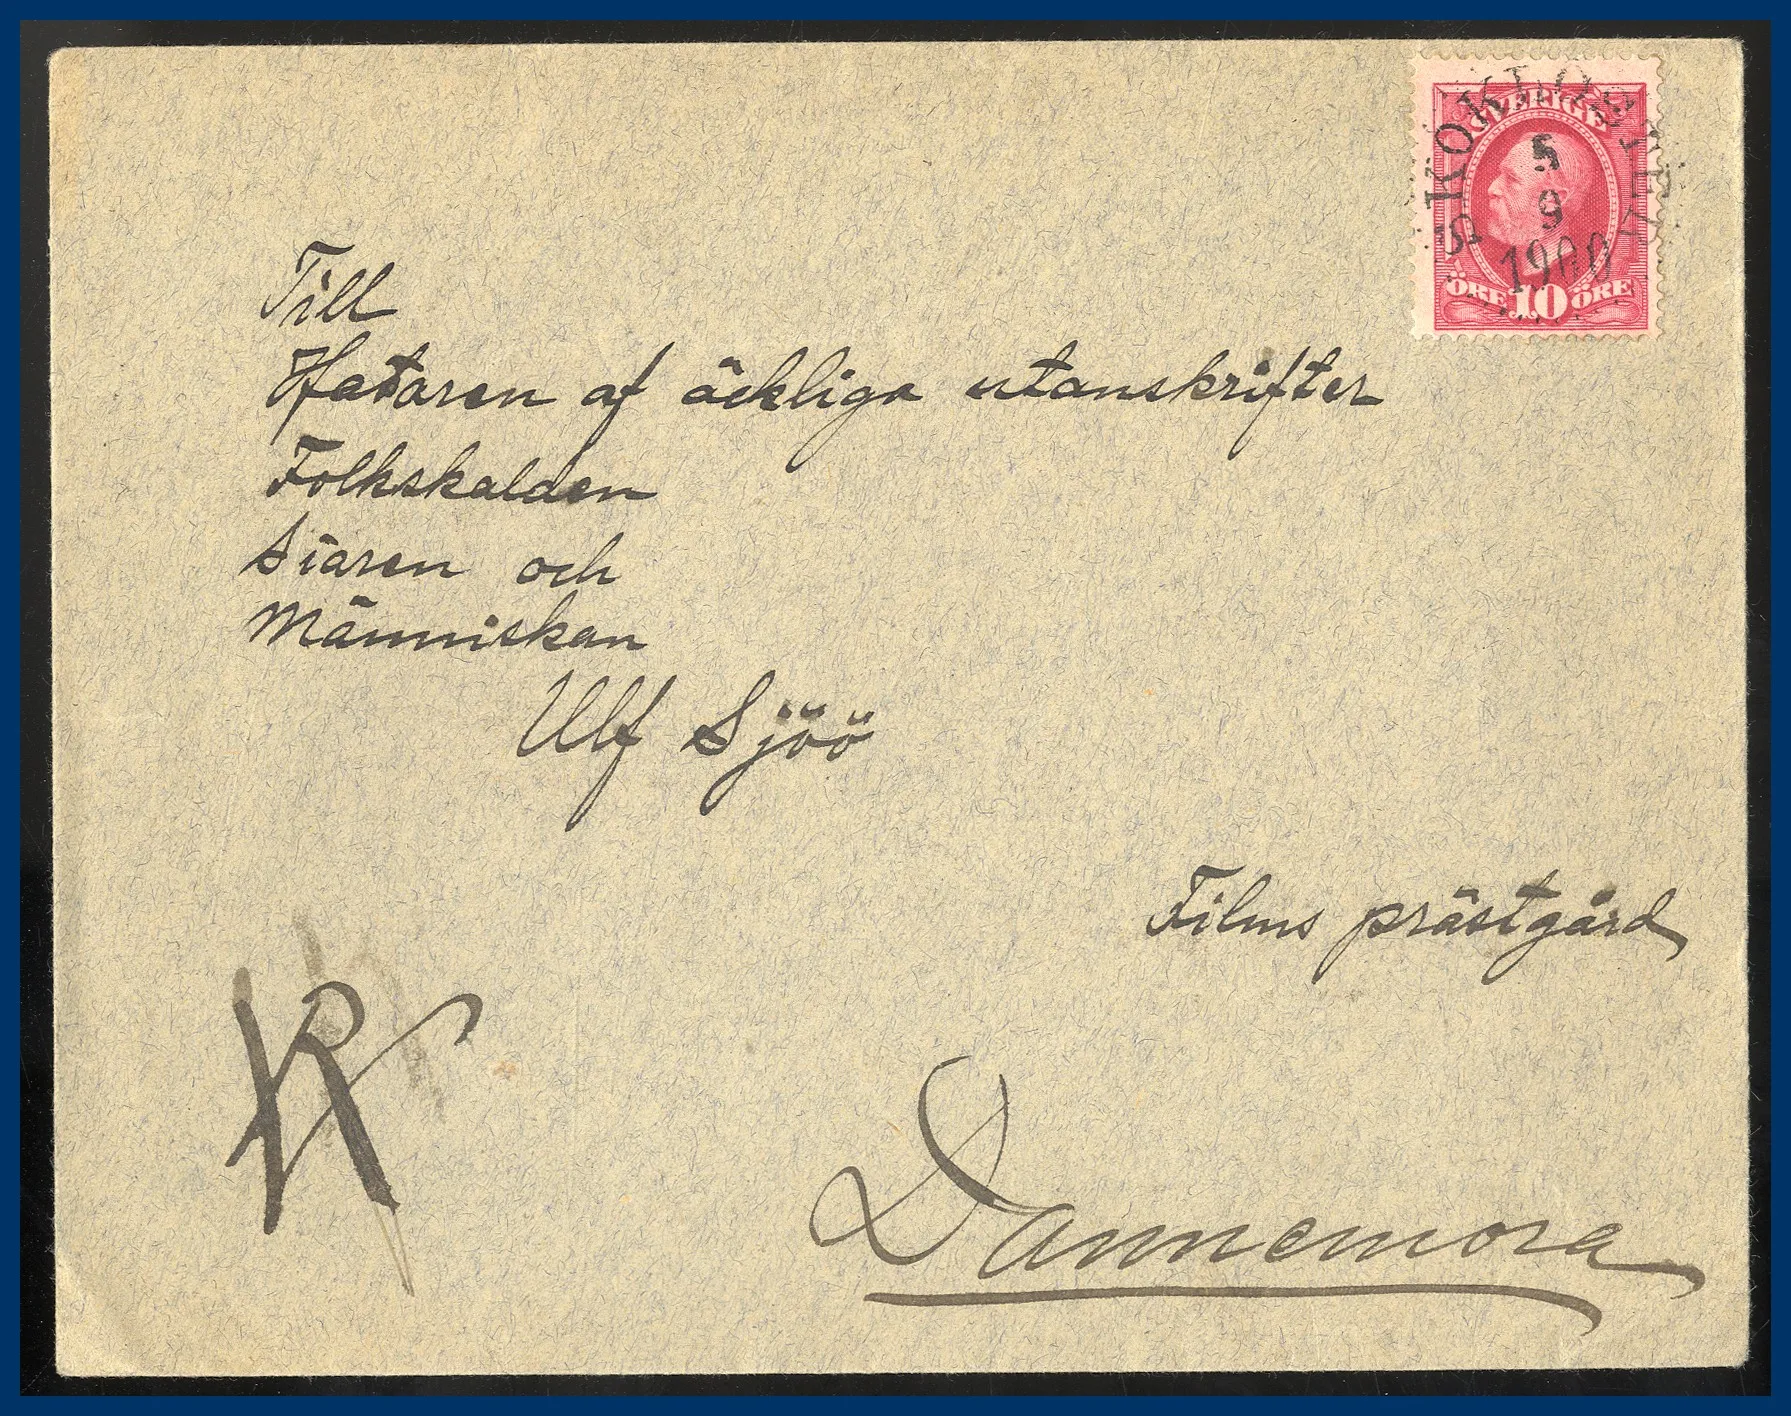 SKOKLOSTER
SVERIGE
5
9
1900
ÖRE 10 ÖRE
Till
Hataren af äckliga utanskrifter
Folkskalden
Siaren och
Människan
Ulf Sjöö
Films prästgård
Dannemora